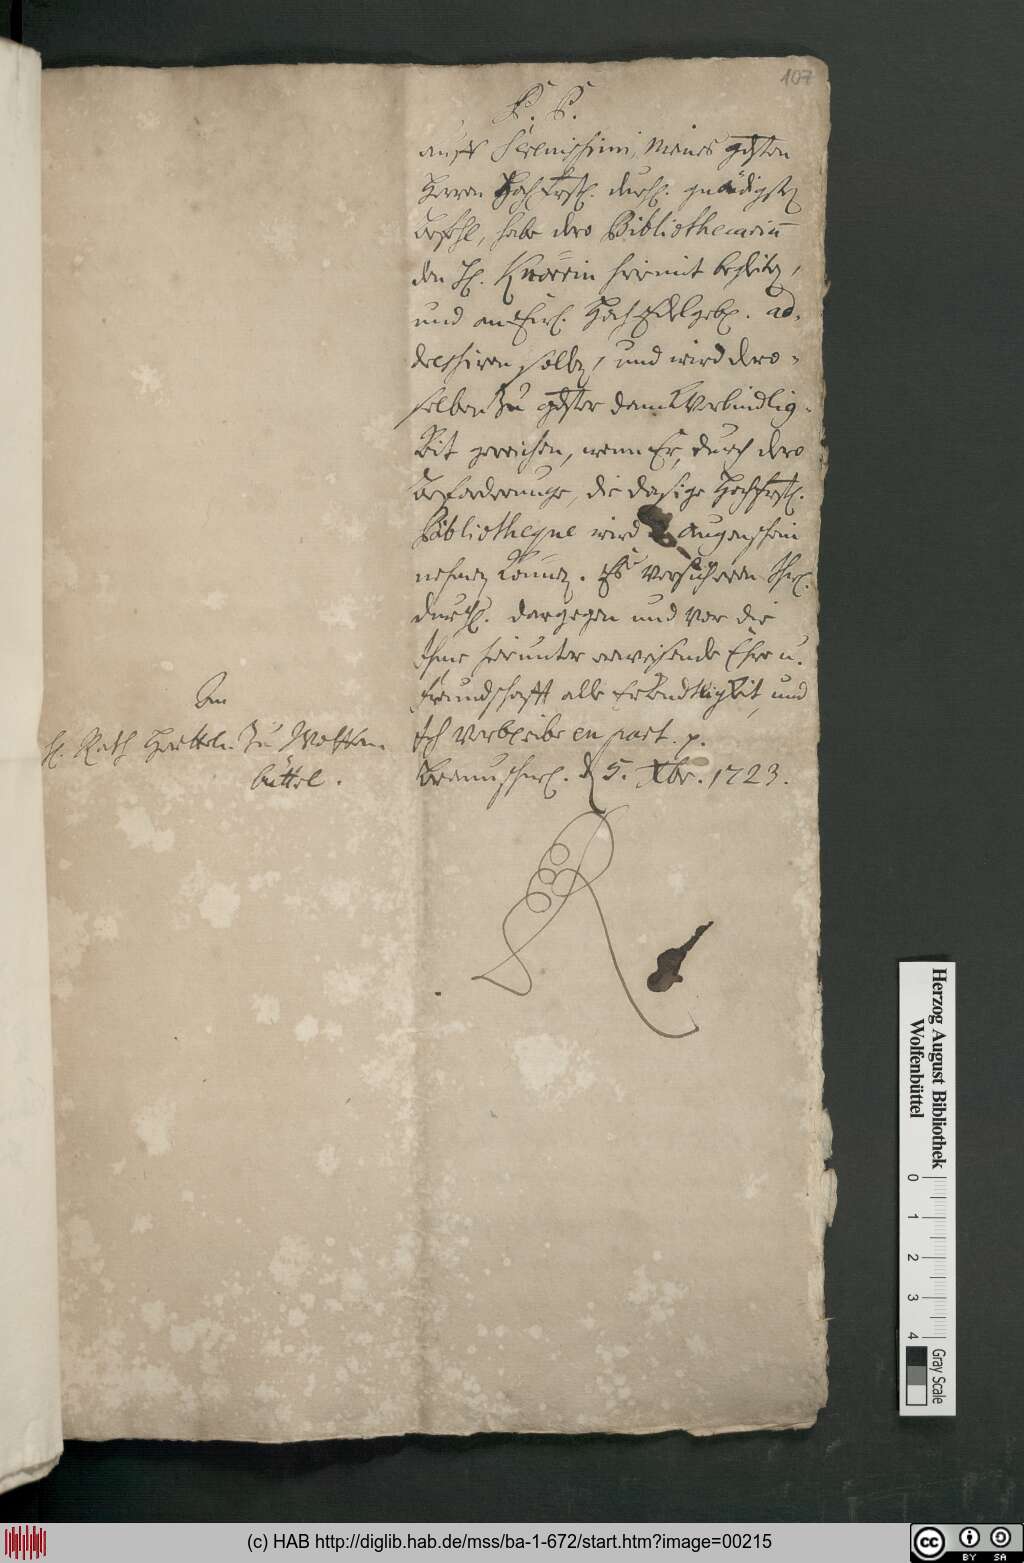 107
P. P.
auff Serenissimi, Meines gdsten
Herren Hochfrstl. durchl. gnädigsten
Befehl, habe dero Bibliothecarium
den H. Knorrin hiermit begleiten,
und an Ew. HochEdelgeb. ad-
dressiren sollen, und wird dero-
selben zu gdster danck Verbindlig-
Keit gereichen, wenn Er, durch dero
Beforderunge, die dasige Hochfrstl.
Bibliotheque wird in augenschein
nehmen können. Es versicheren Ihr.
durchl. dargegen und vor die
Ihme hierunter erweisende Ehre u.
freundschafft alle Erkendtligkeit, und
Ich verbleibe en part. p.
Braunschw. d 5. Xbr. 1723.
An
H. Rath Haetteln zu Wolffen-
büttel.
Herzog August Bibliothek
Wolfenbüttel
0 1 2 3 4
Gray Scale
(c) HAB http://diglib.hab.de/mss/ba-1-672/start.htm?image=00215
cc BY SA